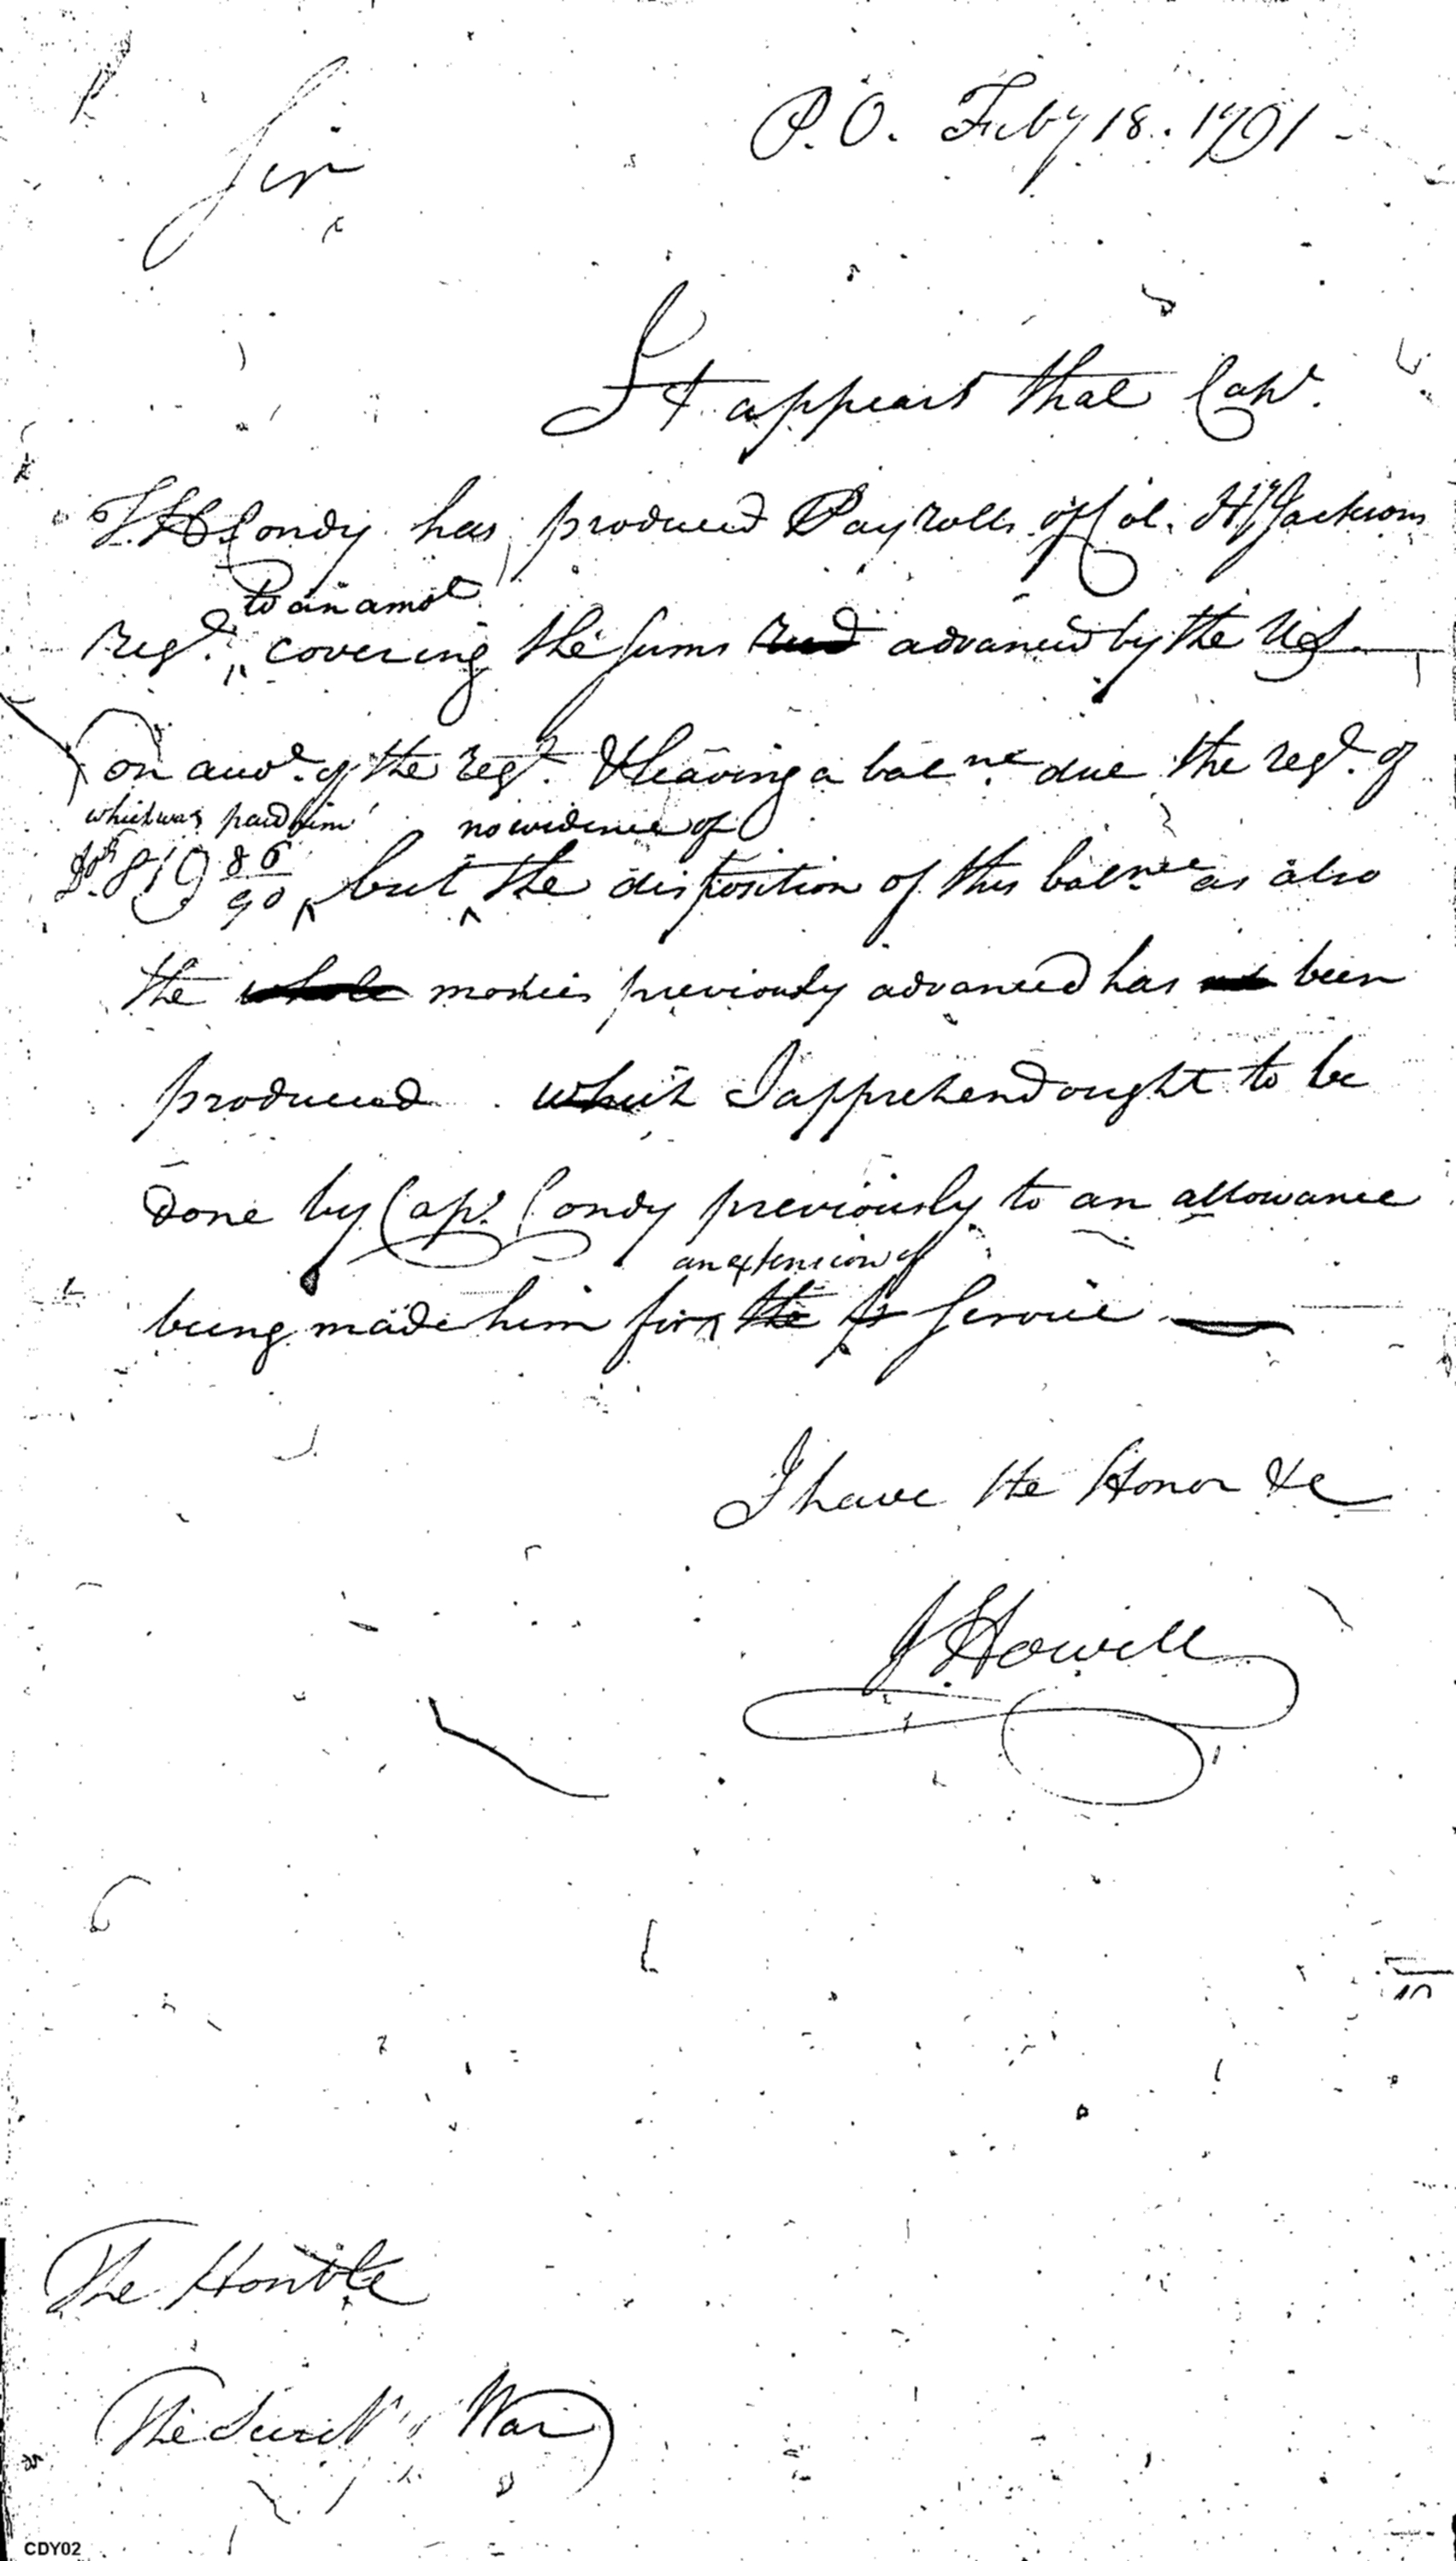 P.O. Feby 18. 1791
Sir
It appears that Capt.
T.H Condy has produced Payrolls of Col. H Jacksons
to an amot
Regt. covering the sums advanced by the US
on accot. of the regt. & leaving a balnce due the regt. of
which was paid him no evidence of
Drs 819 86/90 but the disposition of this balnce as also
the whole monies previously advanced has not been
produced which I apprehend ought to be
done by Capt. Condy previously to an allowance
an extension of
being made him for the Service
I have the Honor &c
J Howell
The Honble
The Secrety War
CDY02